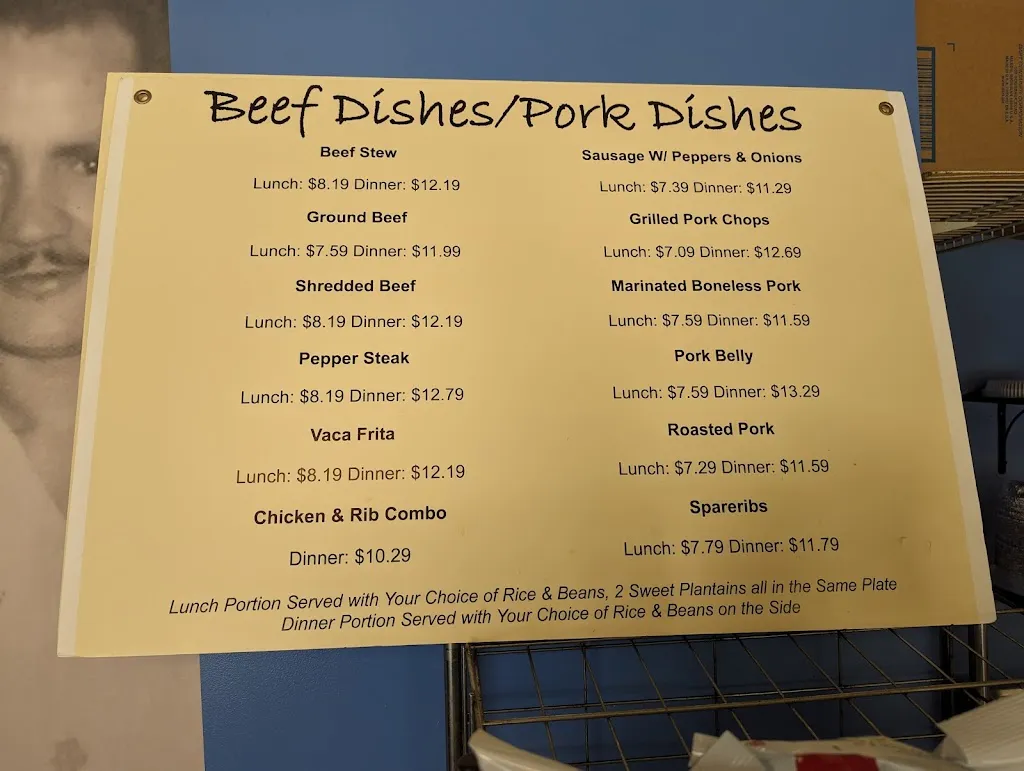 Beef Dishes/Pork Dishes
Beef Stew
Lunch: $8.19 Dinner: $12.19
Ground Beef
Lunch: $7.59 Dinner: $11.99
Shredded Beef
Lunch: $8.19 Dinner: $12.19
Pepper Steak
Lunch: $8.19 Dinner: $12.79
Vaca Frita
Lunch: $8.19 Dinner: $12.19
Chicken & Rib Combo
Dinner: $10.29
Sausage W/ Peppers & Onions
Lunch: $7.39 Dinner: $11.29
Grilled Pork Chops
Lunch: $7.09 Dinner: $12.69
Marinated Boneless Pork
Lunch: $7.59 Dinner: $11.59
Pork Belly
Lunch: $7.59 Dinner: $13.29
Roasted Pork
Lunch: $7.29 Dinner: $11.59
Spareribs
Lunch: $7.79 Dinner: $11.79
Lunch Portion Served with Your Choice of Rice & Beans, 2 Sweet Plantains all in the Same Plate
Dinner Portion Served with Your Choice of Rice & Beans on the Side